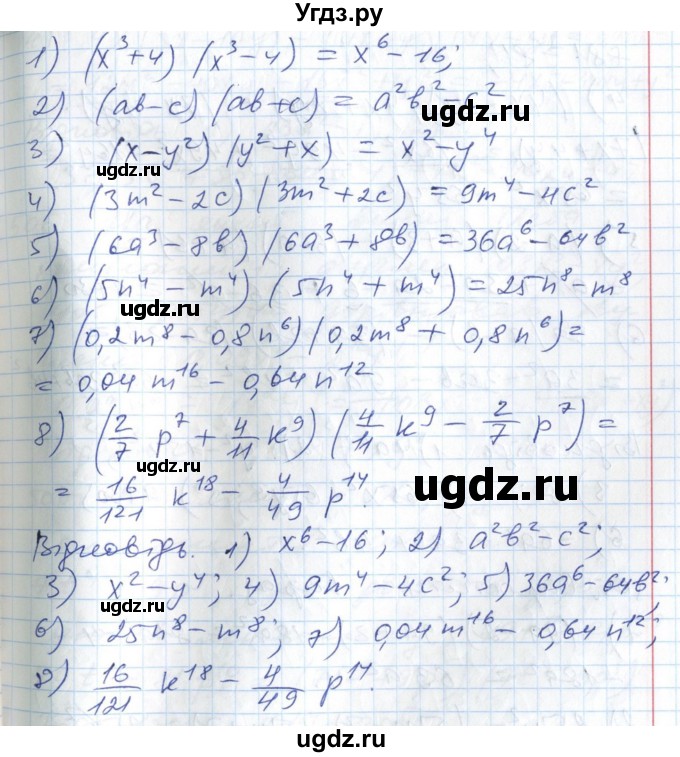 Угдз.ру
1) (x³+4)(x³-4) = x⁶-16;
2) (ab-c)(ab+c) = a²b²-c²
ugdz.ru
3) (x-y²)(y²+x) = x²-y⁴
ugdz.ru
4) (3m²-2c)(3m²+2c) = 9m⁴-4c²
5) (6a³-8b)(6a³+8b) = 36a⁶-64b²
ugdz.ru
6) (5n⁴-m⁴)(5n⁴+m⁴) = 25n⁸-m⁸
ugdz.ru
7) (0,2m⁸-0,8n⁶)(0,2m⁸+0,8n⁶) =
= 0,04m¹⁶-0,64n¹²
8) (2/7 p⁷ + 4/11 k⁹)(4/11 k⁹ - 2/7 p⁷) =
ugdz.ru
= 16/121 k¹⁸ - 4/49 p¹⁴.
ugdz.ru
Відповідь. 1) x⁶-16; 2) a²b²-c²;
3) x²-y⁴; 4) 9m⁴-4c²; 5) 36a⁶-64b²;
ugdz.ru
ugdz.ru
6) 25n⁸-m⁸; 7) 0,04m¹⁶-0,64n¹²;
8) 16/121 k¹⁸ - 4/49 p¹⁴.
ugdz.ru
ugdz.ru